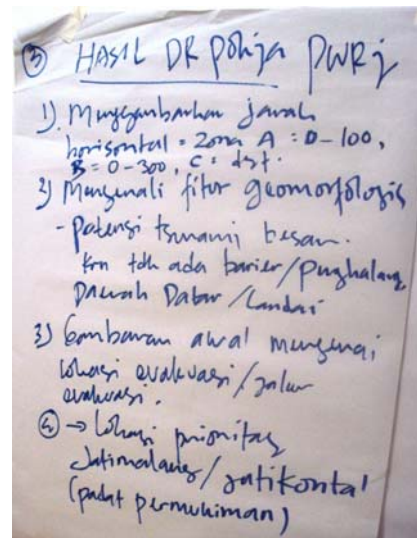 ③ HASIL DR pokja PWRj
1). Menggambarkan jarak
horisontal = Zona A = 0-100,
B = 0-300, C = dst.
2) Mengenali fitur geomorfologis
- potensi tsunami besar.
krn tdk ada barier/penghalang
Daerah Datar/Landai
3) Gambaran awal mengenai
lokasi evakuasi/jalur
evakuasi.
④ → Lokasi prioritas
Jatimalang/Jatikontal
(padat permukiman)